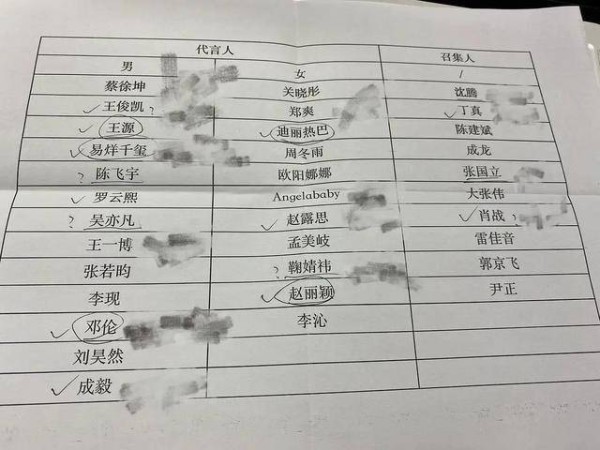 代言人 召集人
男 女 /
蔡徐坤 关晓彤 沈腾
王俊凯? 郑爽 丁真
王源 迪丽热巴 陈建斌
易烊千玺 周冬雨 成龙
?陈飞宇 欧阳娜娜 张国立
罗云熙 Angelababy 大张伟
?吴亦凡 赵露思 肖战
王一博 孟美岐 雷佳音
张若昀 ?鞠婧祎 郭京飞
李现 赵丽颖 尹正
邓伦 李沁
刘昊然
成毅